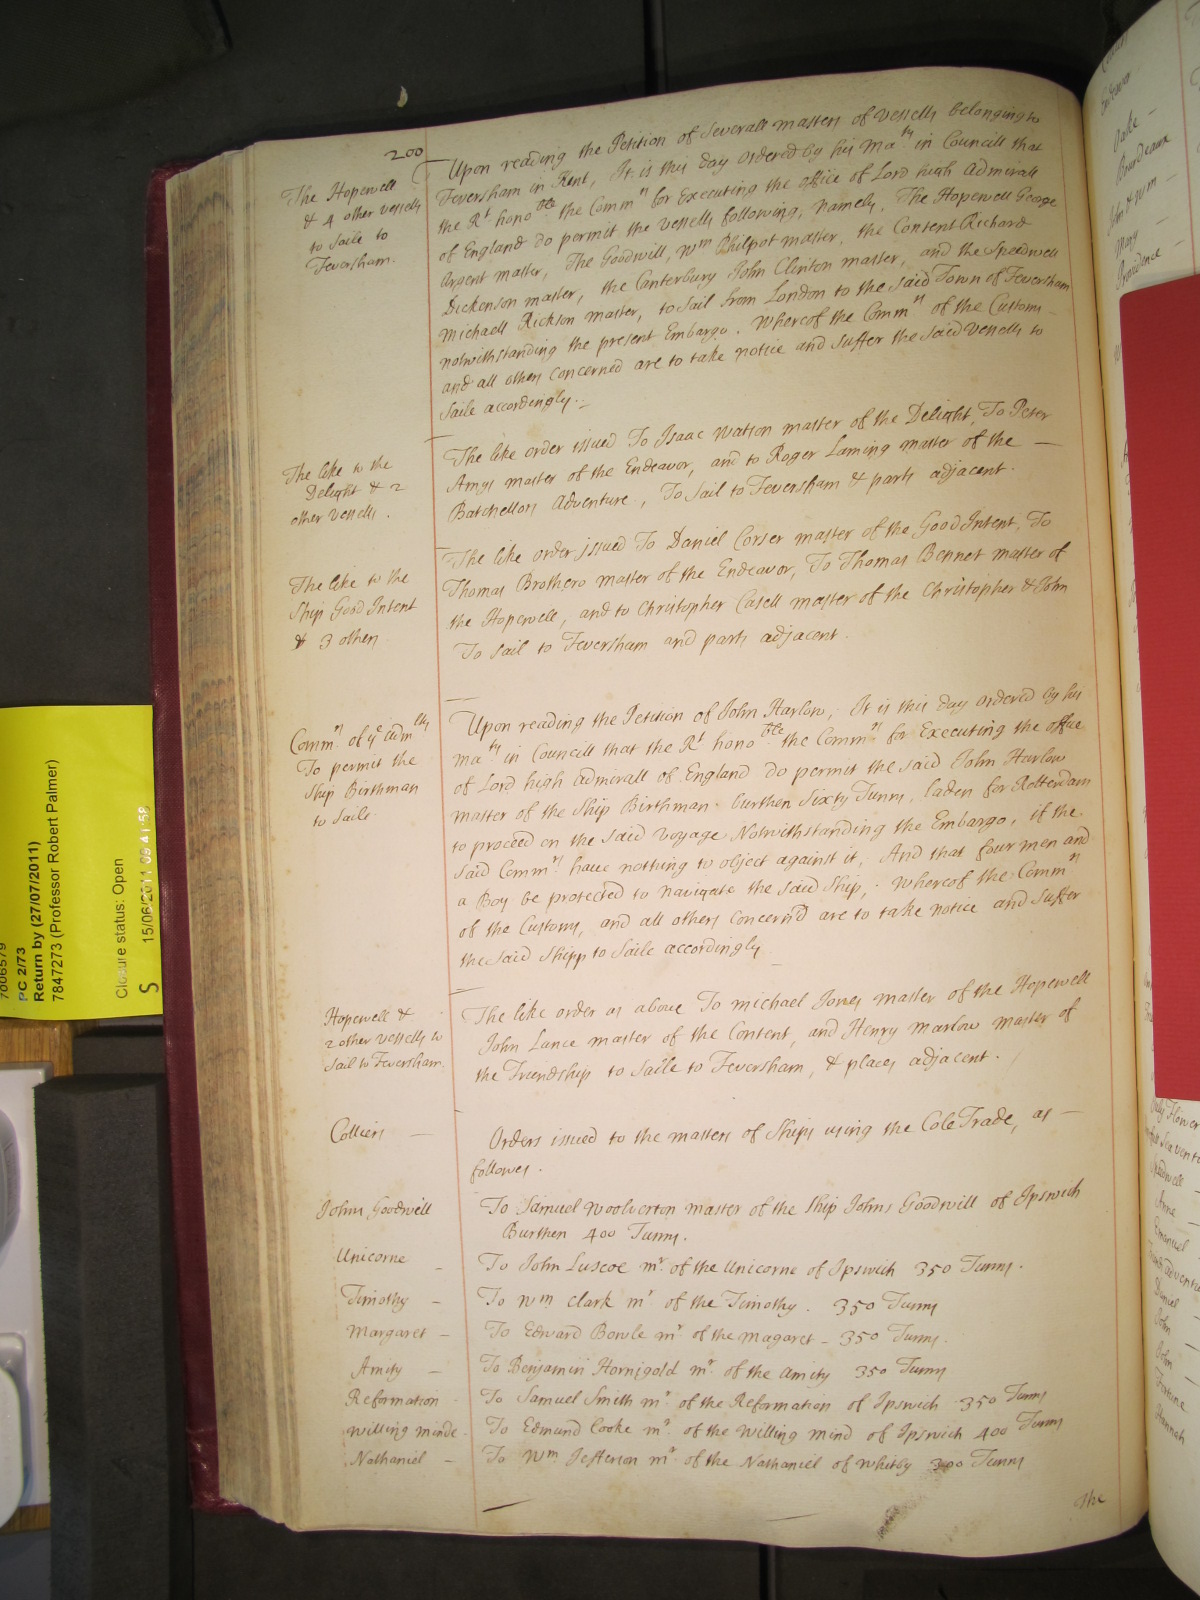 200
The Hopewell
& 4 other vessells
to Saile to
Feversham.
Upon reading the Petition of Severall masters of Vessells belonging to
Feversham in Kent, It is this day Ordered by his Ma^ty in Councill that
the R^t hono^ble the Comm^rs for Executing the office of Lord high Admirall
of England do permit the vessells following, namely, The Hopewell George
Argent master, The Goodwill, W^m Philpot master, the Content Richard
Dickenson master, the Canterbury John Clinton master, and the Speedwell
Michaell Rickson master, to sail from London to the said Town of Feversham
notwithstanding the present Embargo. Whereof the Comm^rs of the Customs
and all others concerned are to take notice and suffer the said Vessells to
Saile accordingly.
The like to the
Delight & 2
other vessells.
The like order issued To Isaac Watson master of the Delight, To Peter
Amys master of the Endeavor, and to Roger Laming master of the
Batchellors Adventure, To Sail to Feversham & parts adjacent.
The like to the
Ship Good Intent
& 3 others
The like order issued To Daniel Corser master of the Good Intent, To
Thomas Brothero master of the Endeavor, To Thomas Bennet master of
the Hopewell, and to Christopher Casell master of the Christopher & John
To sail to Feversham and parts adjacent.
Comm^rs of y^e Adm^lty
To permit the
Ship Birthman
to Saile
Upon reading the Petition of John Harlow, It is this day ordered by his
Ma^ty in Councill that the R^t hono^ble the Comm^rs for Executing the office
of Lord high Admirall of England do permit the said John Harlow
master of the Ship Birthman burthen Sixty Tunns, laden for Rotterdam
to proceed on the said voyage Notwithstanding the Embargo, if the
said Comm^rs have nothing to object against it, And that four men and
a Boy be protected to navigate the said Ship, Whereof the Comm^rs
of the Customs, and all others concern'd are to take notice and suffer
the said Shipp to Saile accordingly
Hopewell &
2 other vessells to
sail to Feversham.
The like order as above To Michael Jones master of the Hopewell
John Lance master of the Content, and Henry Marlow master of
the Friendship to Saile to Feversham, & places adjacent.
Colliers —
Orders issued to the masters of Ships using the Cole Trade, as —
followes.
Johns Goodwill
To Samuel Woolverton master of the Ship Johns Goodwill of Ipswich
Burthen 400 Tunns.
Unicorne -
To John Luscoe m^r of the Unicorne of Ipswich 350 Tunns.
Timothy -
To W^m Clark m^r of the Timothy. 350 Tunns
Margaret -
To Edward Bowle m^r of the Magaret - 350 Tunns.
Amity -
To Benjamin Hornigold m^r of the Amity 350 Tunns
Reformation
To Samuel Smith m^r of the Reformation of Ipswich 350 Tunns
Willing minde
To Edmund Cooke m^r of the Willing mind of Ipswich 400 Tunns
Nathaniel -
To W^m Jefferson m^r of the Nathaniel of Whitby 300 Tunns
The
7006579
PC 2/73
Return by (27/07/2011)
7847273 (Professor Robert Palmer)
Closure status: Open
S 15/06/2011 09:41:58
Endeavor
Oake -
Bourdeaux
Mary -
Providence -
Speedwell -
Anne -
Emanuel
Daniel
John
John
Fortune
Hannah